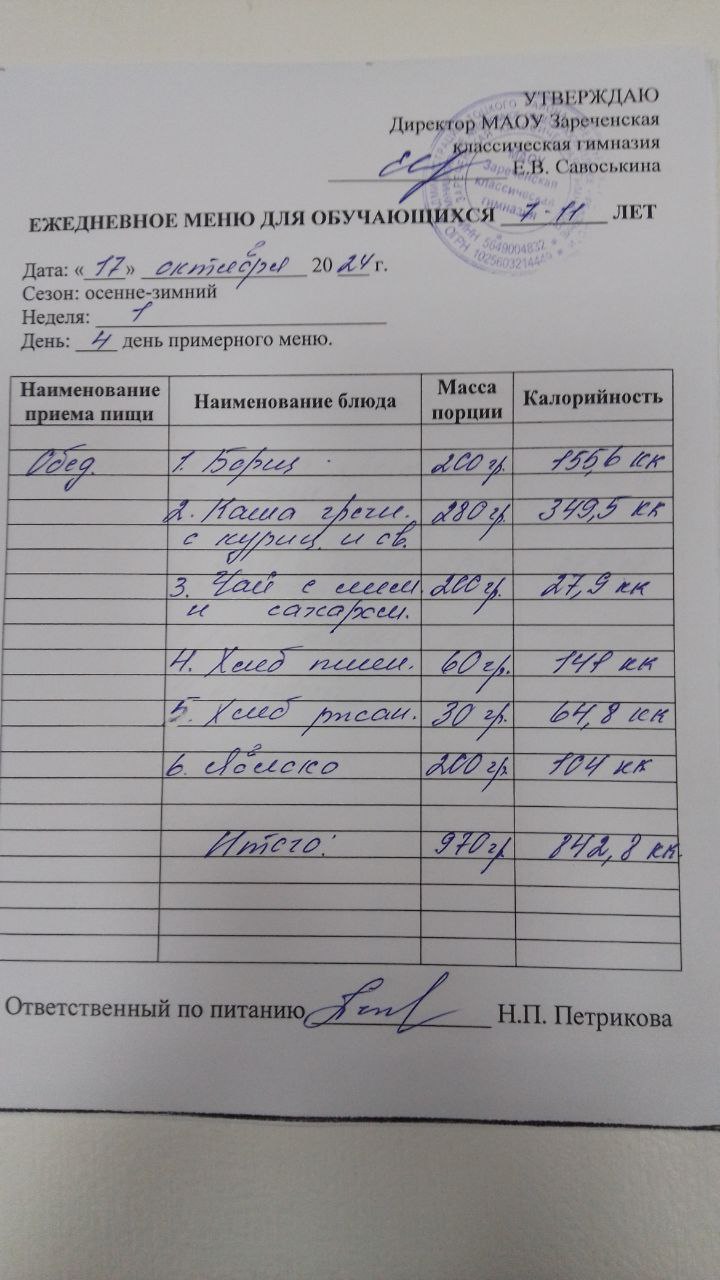 УТВЕРЖДАЮ
Директор МАОУ Зареченская
классическая гимназия
Е.В. Савоськина
МАОУ
Зареченская
классическая
гимназия
ИНН 5649004832
ОГРН 1025603214449
ЕЖЕДНЕВНОЕ МЕНЮ ДЛЯ ОБУЧАЮЩИХСЯ 7-11 ЛЕТ
Дата: «17» октября 2024 г.
Сезон: осенне-зимний
Неделя: 1
День: 4 день примерного меню.
Наименование приема пищи Наименование блюда Масса порции Калорийность
Обед. 1. Борщ 200 гр. 155,6 кк
2. Каша гречн. 280 гр. 349,5 кк
с куриц. и св.
3. Чай с лим. 200 гр. 27,9 кк
и сахаром.
4. Хлеб пшен. 60 гр. 141 кк
5. Хлеб ржан. 30 гр. 64,8 кк
6. Яблоко 200 гр. 104 кк
Итого: 970 гр 842,8 кк.
Ответственный по питанию Н.П. Петрикова